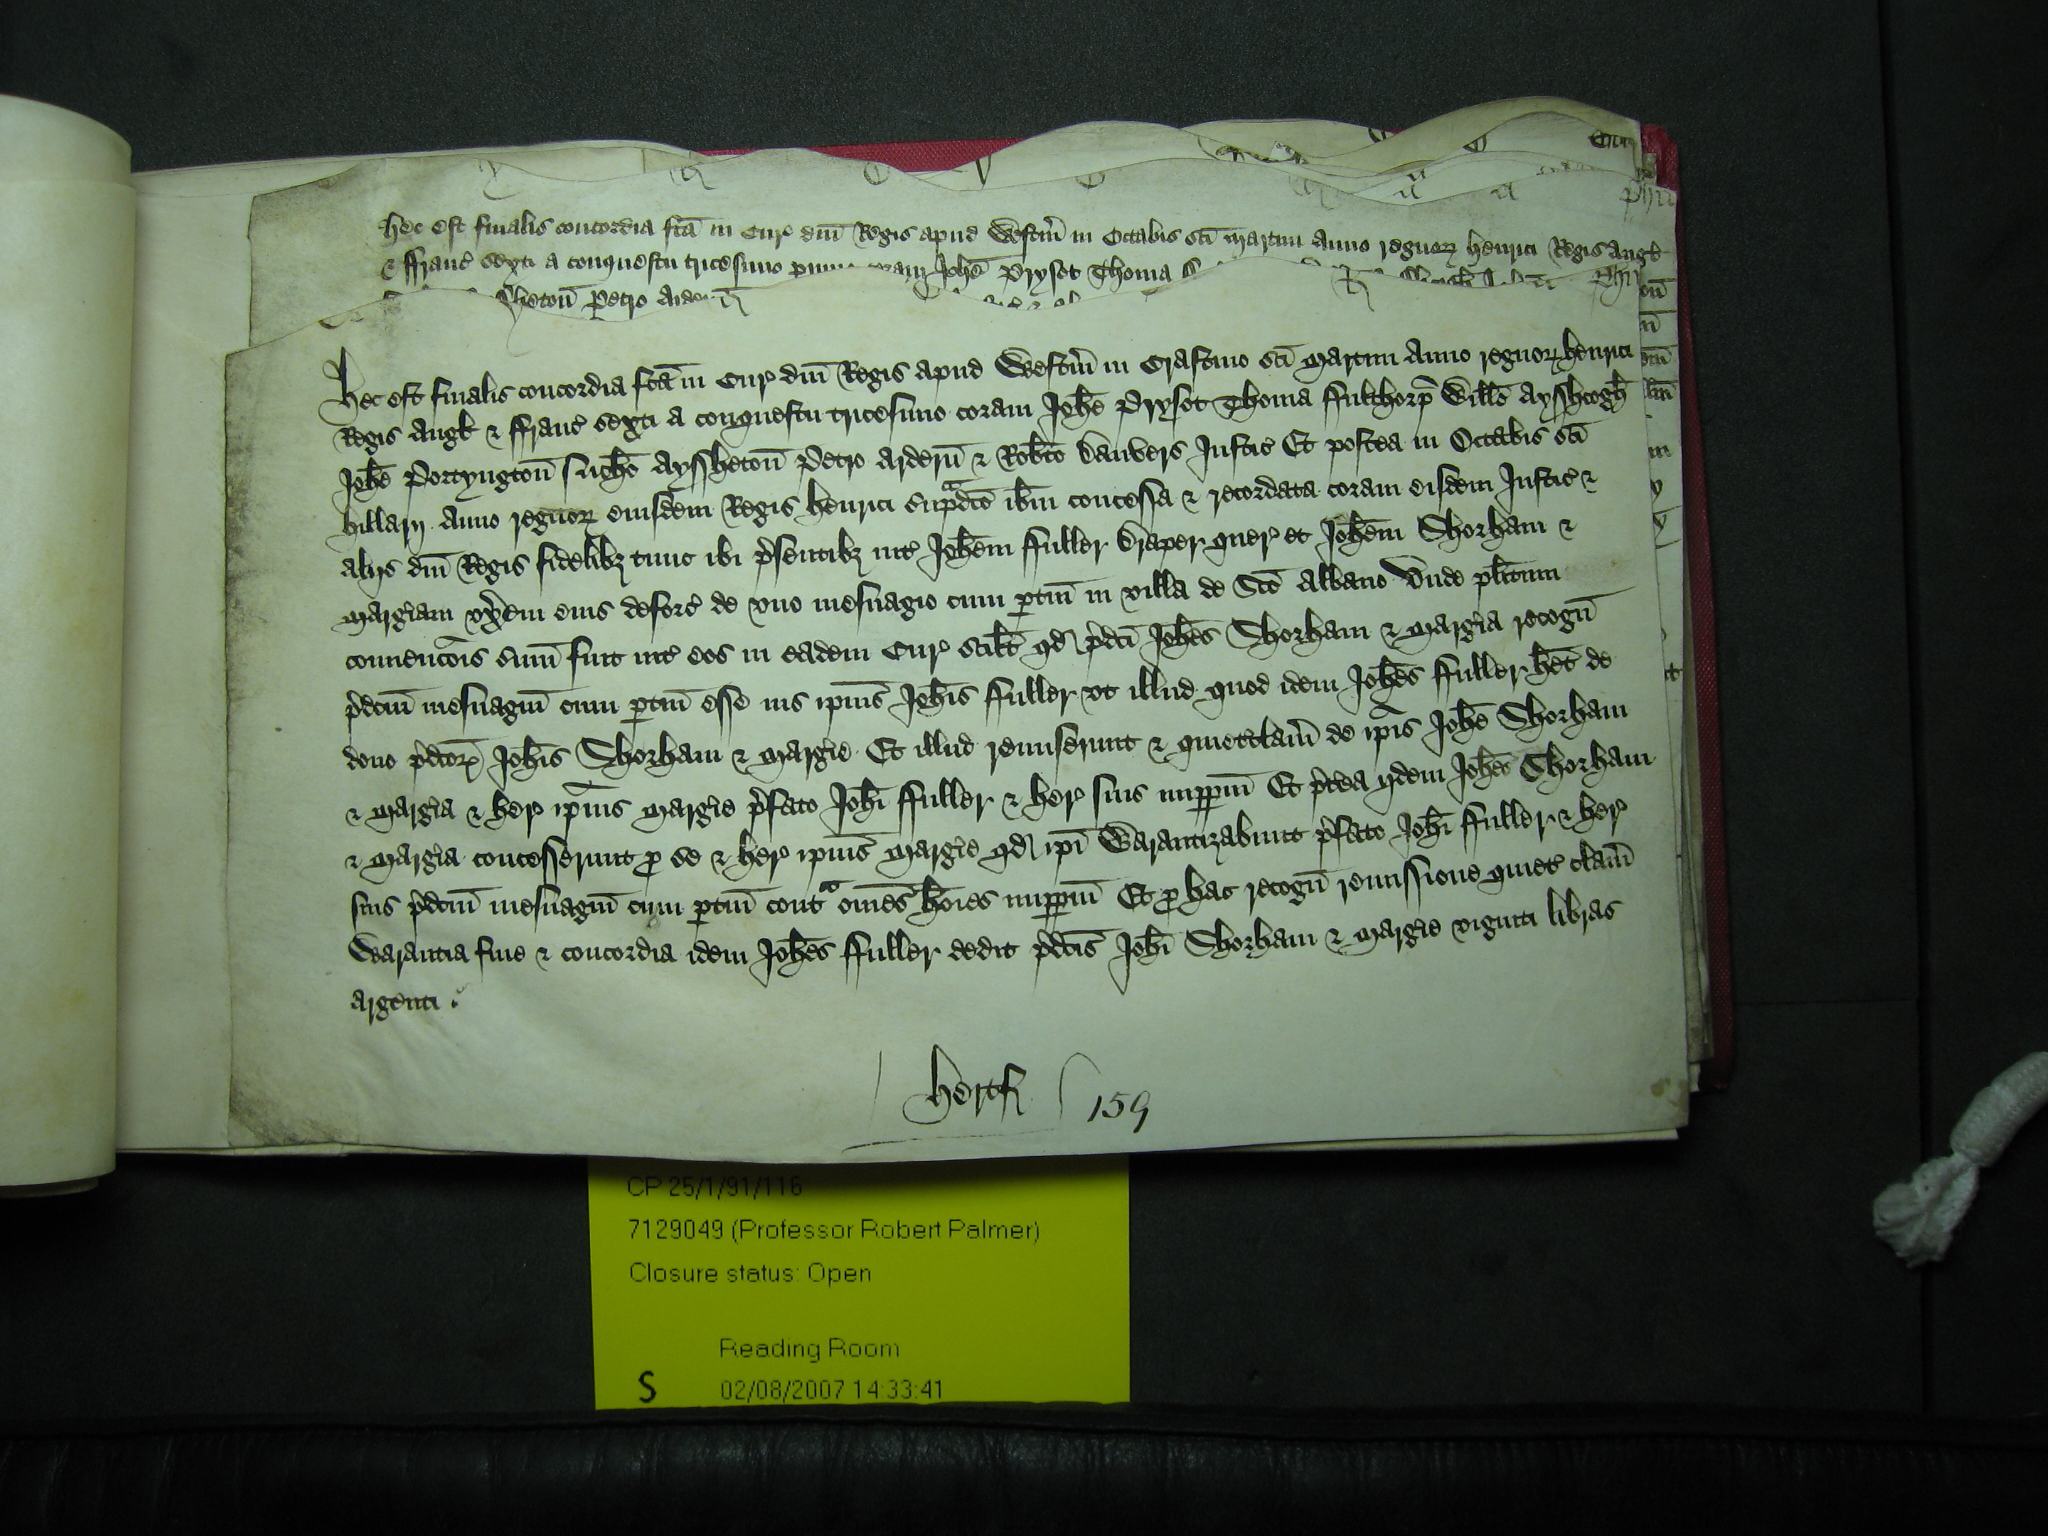 hec est finalis concordia fcā in Cur dnī Regis apud Westm̄ in Octabis scī Martini Anno regnoꝝ henrici Regis Angł
& ffranc̄ sexti a conquestu tricesimo primo coram Joħe Prysot Thoma
Petro Arder
hec est finalis concordia fcā in Cur dnī Regis apud Westm̄ in Crastino scī Martini Anno regnoꝝ henrici
Regis Angł & ffranc̄ sexti a conquestu tricesimo coram Joħe Prysot Thoma ffulthorp̄ Willo Aysshcogh
Joħe Portyngton̄ Nicho Ayssheton̄ Petro Ardern̄ & Robto Danvers Justic̄ Et postea in Octabis scī
hillarij Anno regnoꝝ eiusdem Regis henrici sup̄dcō ibm concessa & recordata coram eisdem Justic̄ &
alijs dnī Regis fidelibꝫ tunc ibi p̄sentibꝫ int̄ Joħem ffuller Draper quer et Joħem Thorham &
Marg̑iam vx̄em eius deforc̄ de vno mesuagio cum ptin̄ in villa de Scō Albano Vnde plitum
convencōis sum̄ fuit int̄ eos in eadem Cur scilt qd p̄dcī Joħes Thorham & Marg̑ia recogn̄
p̄dcm̄ mesuagiū cum ptin̄ esse ius ipius Joħis ffuller vt illud quod idem Joħes ffuller het de
dono p̄dcoꝝ Joħis Thorham & Marg̑ie Et illud remiserunt & quietclam̄ de ip̄is Joħe Thorham
& Marg̑ia & her ipius Marg̑ie p̄fato Joħi ffuller & her suis imppm̄ Et p̄tea ijdem Joħes Thorham
& Marg̑ia concesserunt ꝓ se & her ipius Marg̑ie qd ipī Warantizabunt p̄fato Joħi ffuller & her
suis p̄dcm̄ mesuagiū cum ptin̄ contᵃ om̄es hoīes imppm̄ Et ꝓ hac recogn̄ remissione quiet̄ clam̄
Warantia fine & concordia idem Joħes ffuller dedit p̄dcīs Joħi Thorham & Marg̑ie viginti libras
argenti .
hertf 159
CP 25/1/91/116
7129049 (Professor Robert Palmer)
Closure status: Open
Reading Room
S 02/08/2007 14:33:41